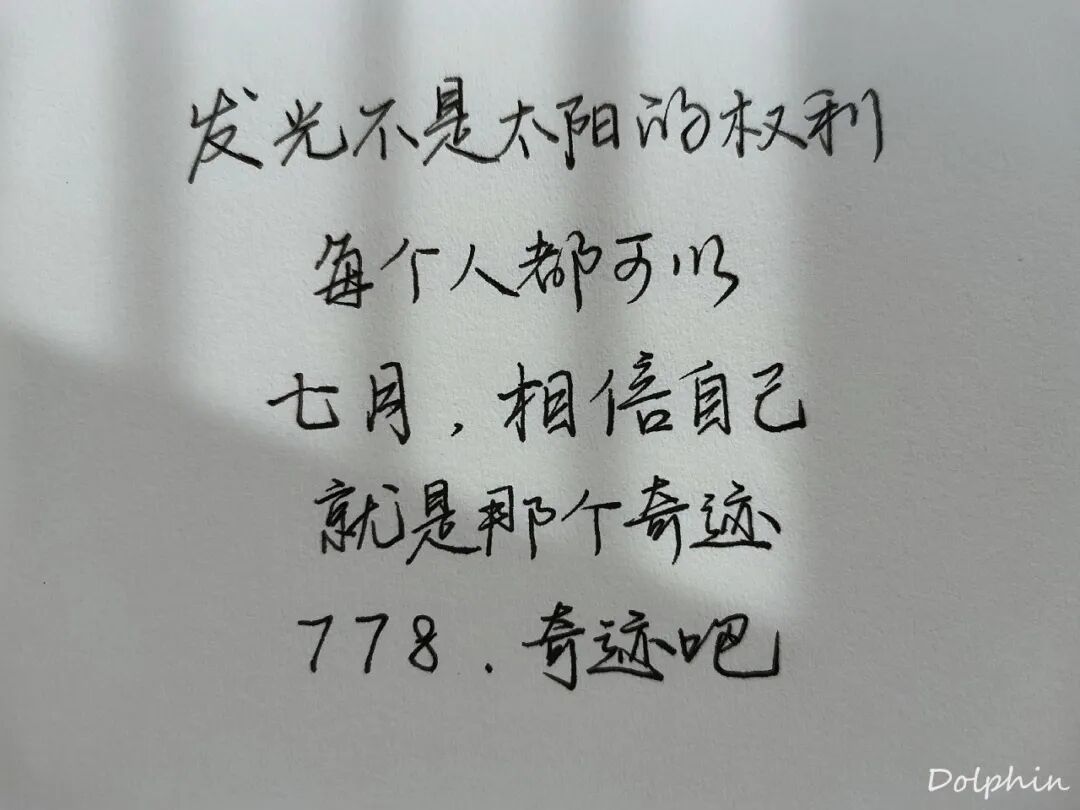 发光不是太阳的权利
每个人都可以
七月，相倍自己
就是那个奇迹
778．奇迹吧
Dolphin